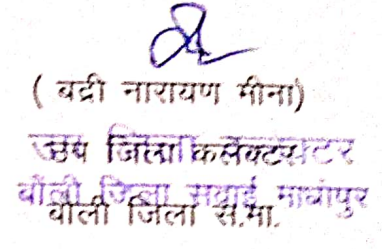 ( बद्री नारायण मीना)
उप जिला कलेक्टर
बौंली जिला सवाई माधोपुर
बौंली जिला स.मा.